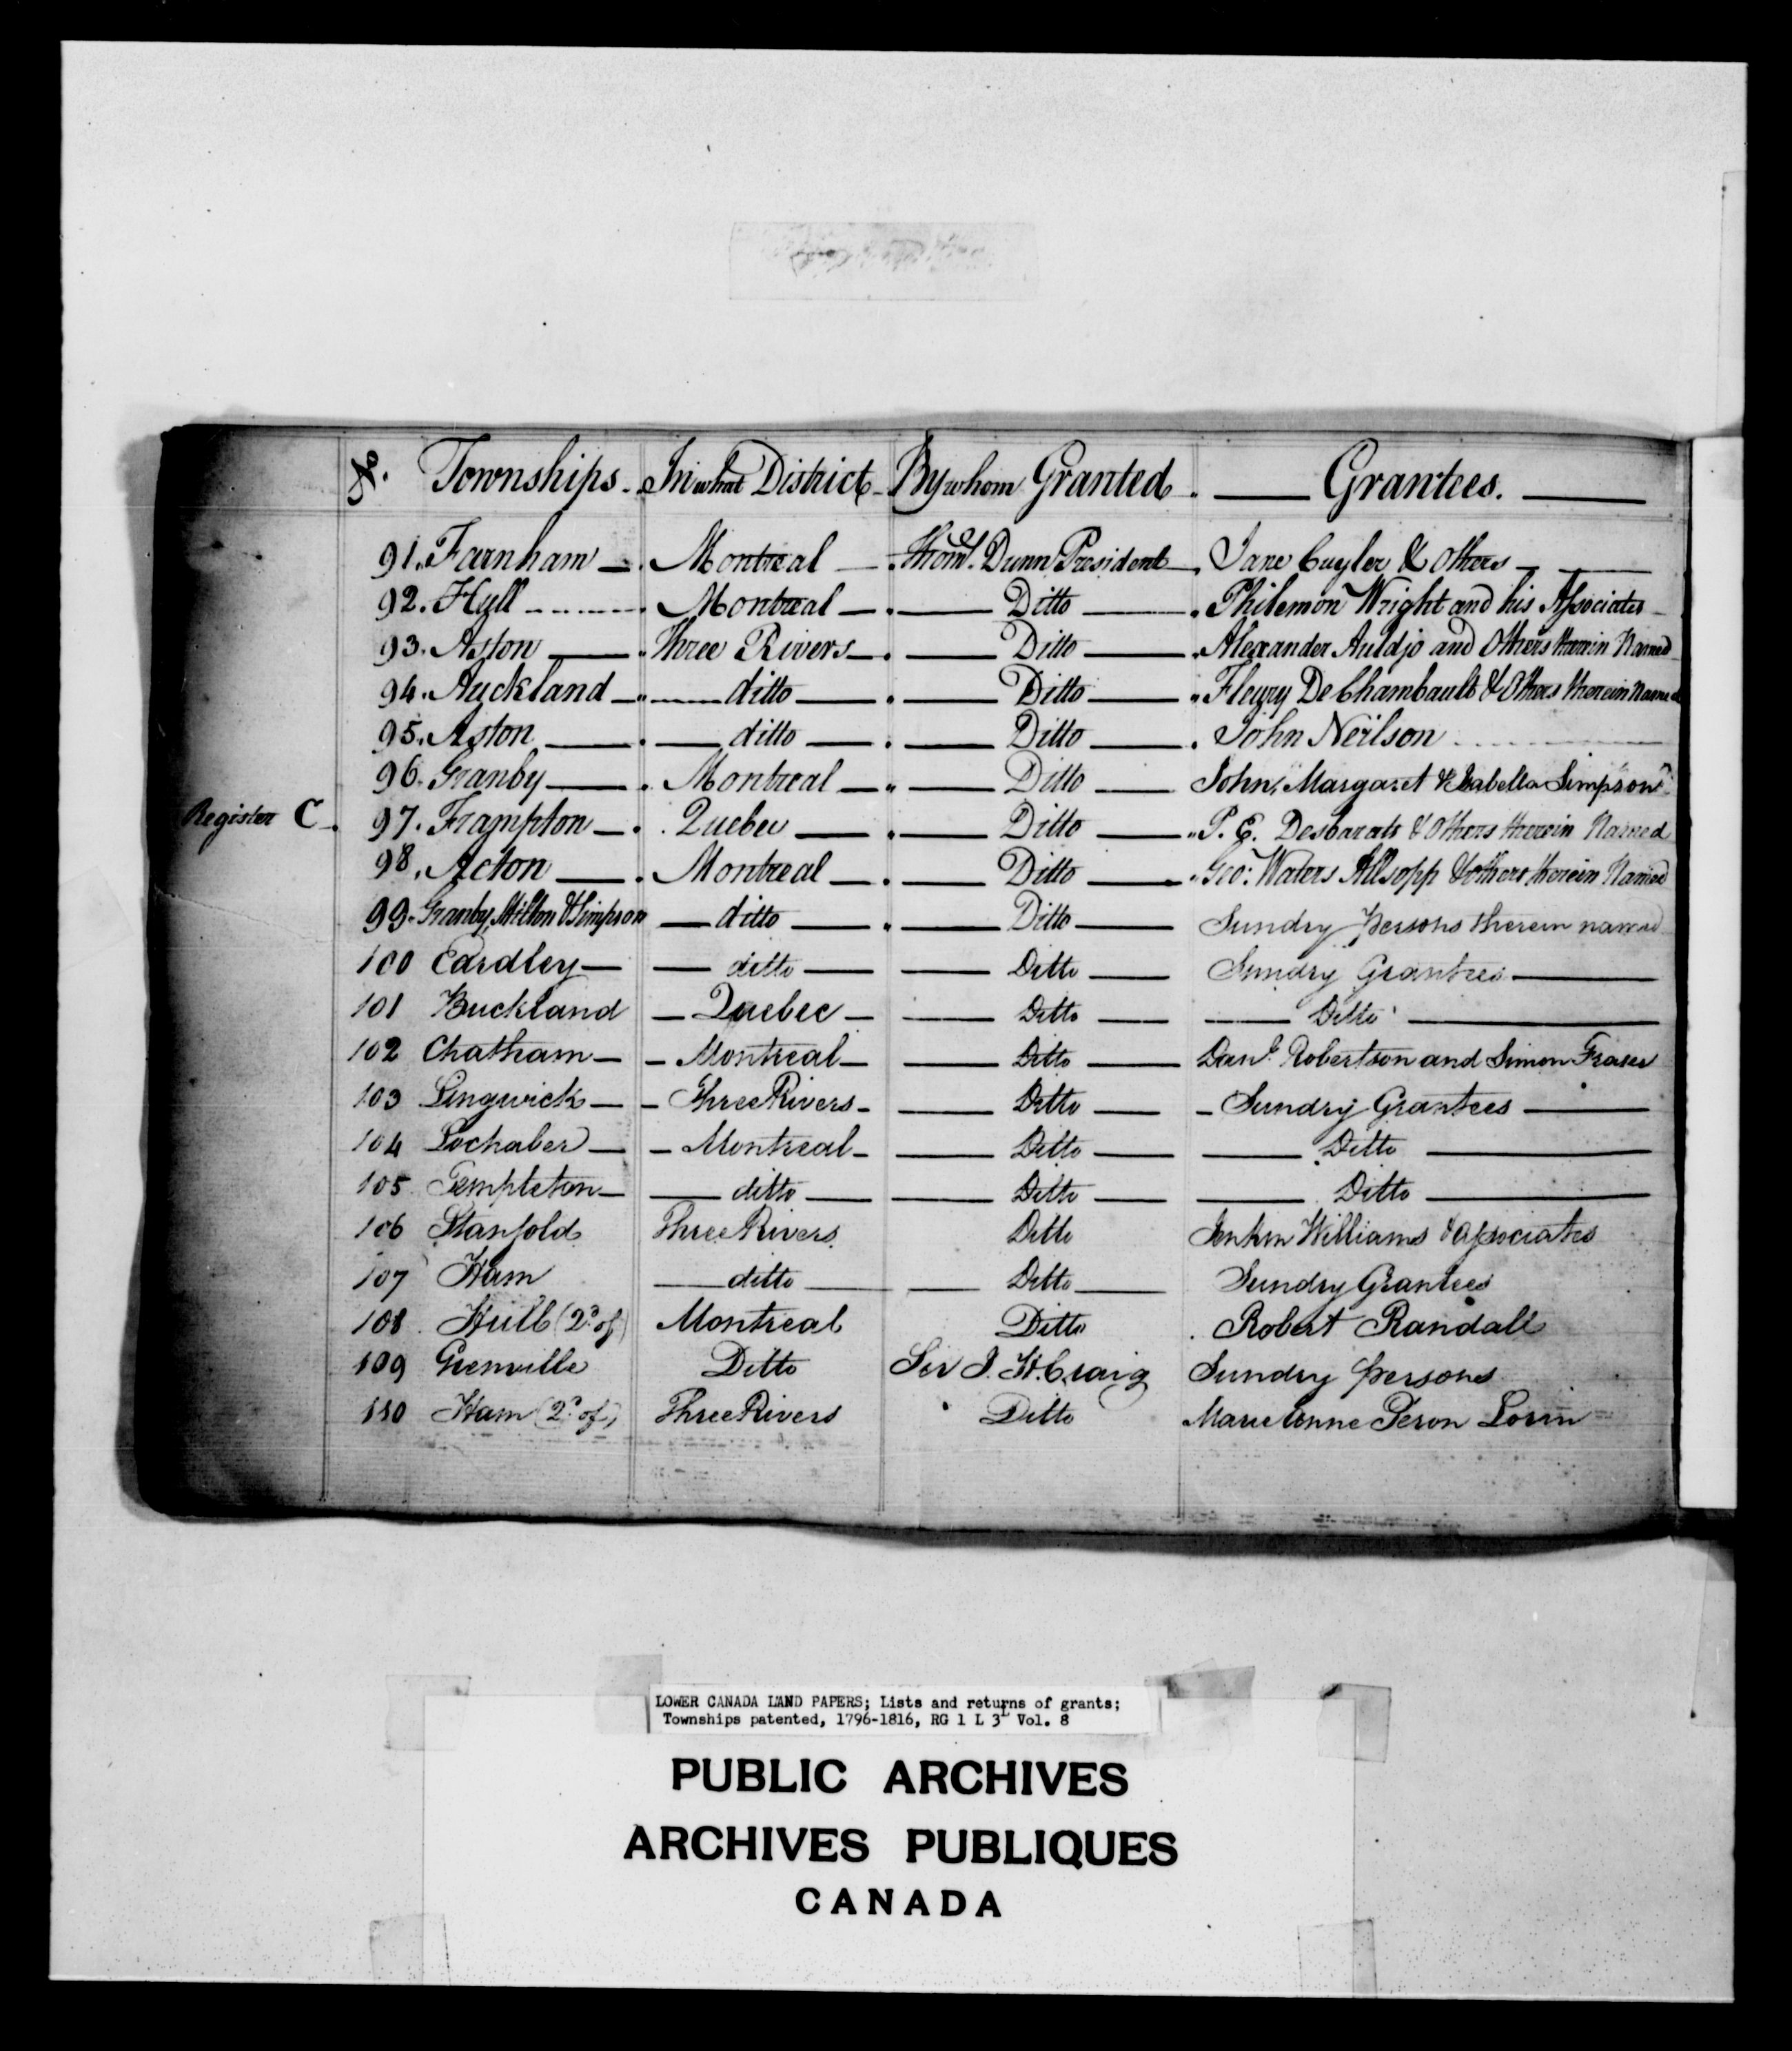 No. Townships. In what District By whom Granted. Grantees.
91. Farnham Montreal Thoms. Dunn President Jane Cuyler & Others
92. Hull Montreal Ditto Philemon Wright and his Associates
93. Aston Three Rivers Ditto Alexander Auldjo and Others therein Named
94. Auckland ditto Ditto Fleury De Chambault & Others therein Named
95. Aston ditto Ditto John Neilson
96. Granby Montreal Ditto John, Margaret & Isabella Simpson
Register C. 97. Frampton Quebec Ditto P. E. Desbarats & Others therein Named
98. Acton Montreal Ditto Geo: Waters Allsopp & others therein Named
99. Granby, Milton & Simpson ditto Ditto Sundry persons therein named
100 Eardley ditto Ditto Sundry Grantees
101 Buckland Quebec Ditto Ditto
102 Chatham Montreal Ditto Danl. Robertson and Simon Fraser
103 Lingwick Three Rivers Ditto Sundry Grantees
104 Lochaber Montreal Ditto Ditto
105 Templeton ditto Ditto Ditto
106 Stanfold Three Rivers Ditto Jenkin Williams & Associates
107 Ham ditto Ditto Sundry Grantees
108 Hull (2d. of) Montreal Ditto Robert Randall
109 Grenville Ditto Sir J. H. Craig Sundry persons
110 Ham (2d. of) Three Rivers Ditto Marie Anne Peron Lorin
LOWER CANADA LAND PAPERS; Lists and returns of grants;
Townships patented, 1796-1816, RG 1 L 3L Vol. 8
PUBLIC ARCHIVES
ARCHIVES PUBLIQUES
CANADA